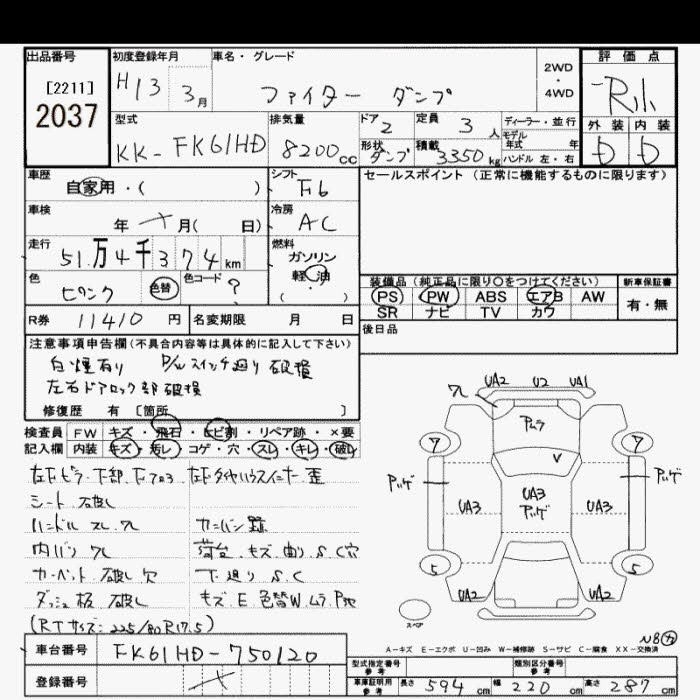 出品番号
[2211]
2037
初度登録年月
H13 3月
車名・グレード
ファイター ダンプ
2WD
・
4WD
評価点
外装 内装
D D
型式
KK-FK61HD
排気量
8200cc
ドア
2
定員
3人
ディーラー・並行
モデル
年式 年
形状
ダンプ
積載
3350kg
ハンドル 左・右
車歴
自家用・( )
シフト
F6
セールスポイント(正常に機能するものに限ります)
車検
年 月( 日)
冷房
AC
走行
51万4千374km
燃料
ガソリン
軽・油
( ・ )
色
ピンク
色替
色コード
?
装備品(純正品に限り〇をつけてください)
PS PW ABS エアB AW
SR ナビ TV カワ
新車保証書
有・無
R券 11410円
名変期限 月 日
後日品
注意事項申告欄(不具合内容等は具体的に記入して下さい)
白煙有り P/Wスイッチ廻り破損
左右ドアロック部破損
修復歴 有 [箇所 ]
検査員 FW キズ・飛石・ヒビ割・リペア跡・×要
記入欄 内装 キズ・汚レ・コゲ・穴・スレ・キレ・破レ
シート 破レ
ハンドル スレ
カーペット 破レ 穴
荷台 キズ 曲り S C穴
下廻り S.C
ダッシュ板 破レ
キズ E 色替W ムラ
(RTサイズ:225/80R17.5)
UA2 U2 UA1
Pムラ
7 7
V
UA3 UA3 UA3
Pハゲ Pハゲ Pハゲ
5 5
UA2 UA2
スペア
A-キズ E-エクボ U-凹み W-補修跡 S-サビ C-腐食 XX-交換済
車台番号
FK61HD-750120
登録番号
型式指定番号
参考
類別区分番号
参考
車庫証明用
参考
長さ 594cm 幅 220cm 高さ 287cm